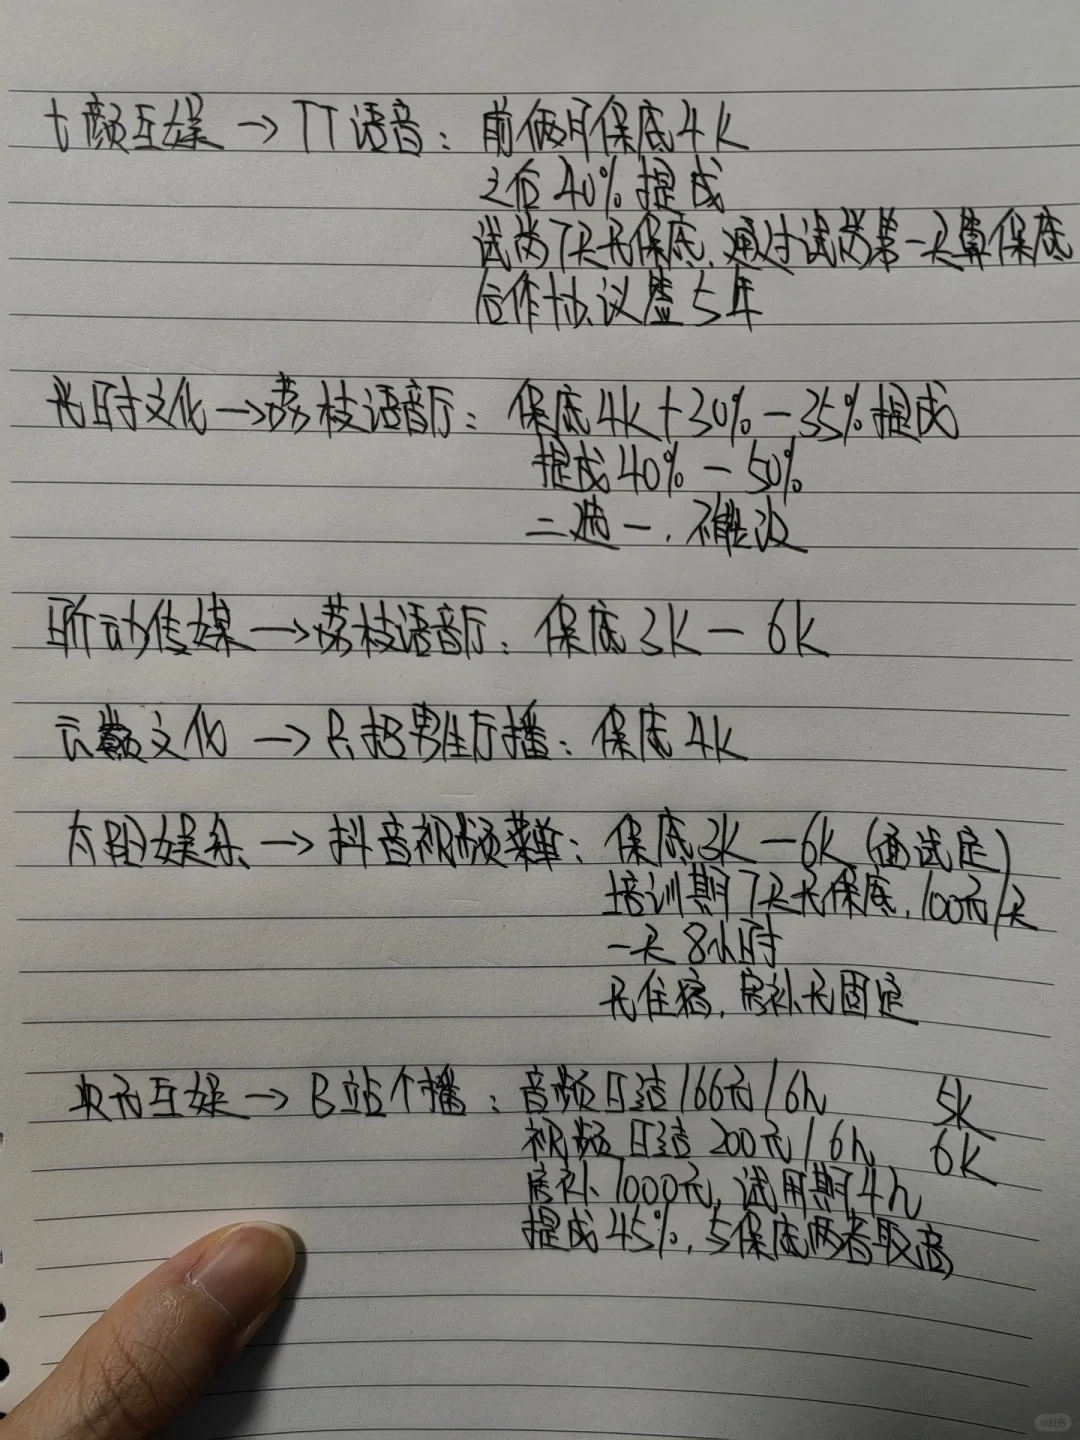 七颜互娱→TT语音：前俩月保底4k
之后40%提成
试岗7天无保底，通过试岗第一天算保底
合作协议签5年
光时文化→荔枝语音厅：保底4k+30%-35%提成
提成40%-50%
二选一，不能改
昕动传媒→荔枝语音厅：保底3K-6k
云巅文化→只招男生厅播：保底4k
太阳娱乐→抖音视频菜单：保底3k-6k(面试定)
培训期7天无保底，100元/天
一天8小时
无住宿，房补无固定
互娱→B站个播：音频日结166元/6h 5k
视频日结200元/6h 6k
房补1000元，试用期4h
提成45%，5保底两者取高
小红书